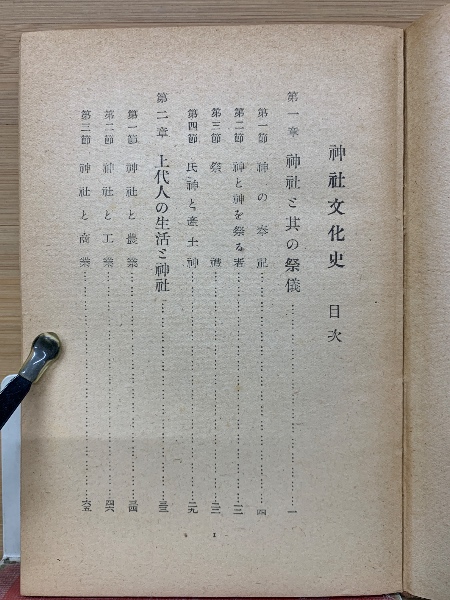 神社文化史 目次
第一章 神社と其の祭儀……一
第一節 神の奉祀……四
第二節 神と神を祭る者……一三
第三節 祭儀……二三
第四節 氏神と産土神……二九
第二章 上代人の生活と神社……三三
第一節 神社と農業……三四
第二節 神社と工業……四六
第三節 神社と商業……六五
1